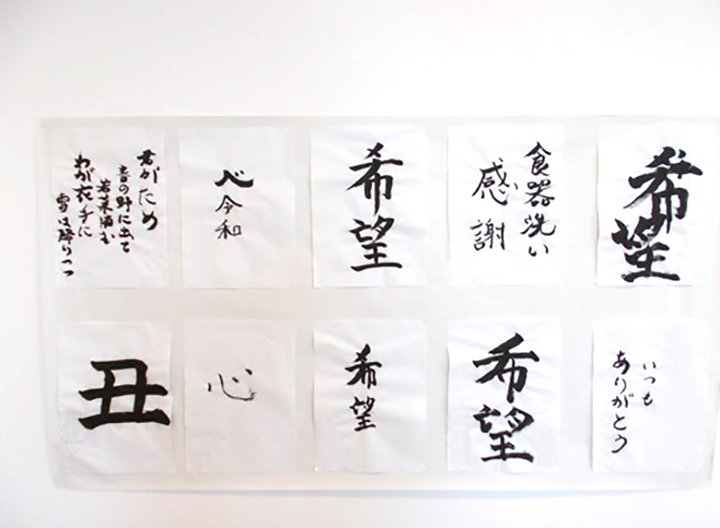 君がため
春の野に出て
若菜摘む
わが衣手に
雪は降りつつ
令和
希望
食器洗い
感謝
希望
丑
心
希望
希望
いつも
ありがとう